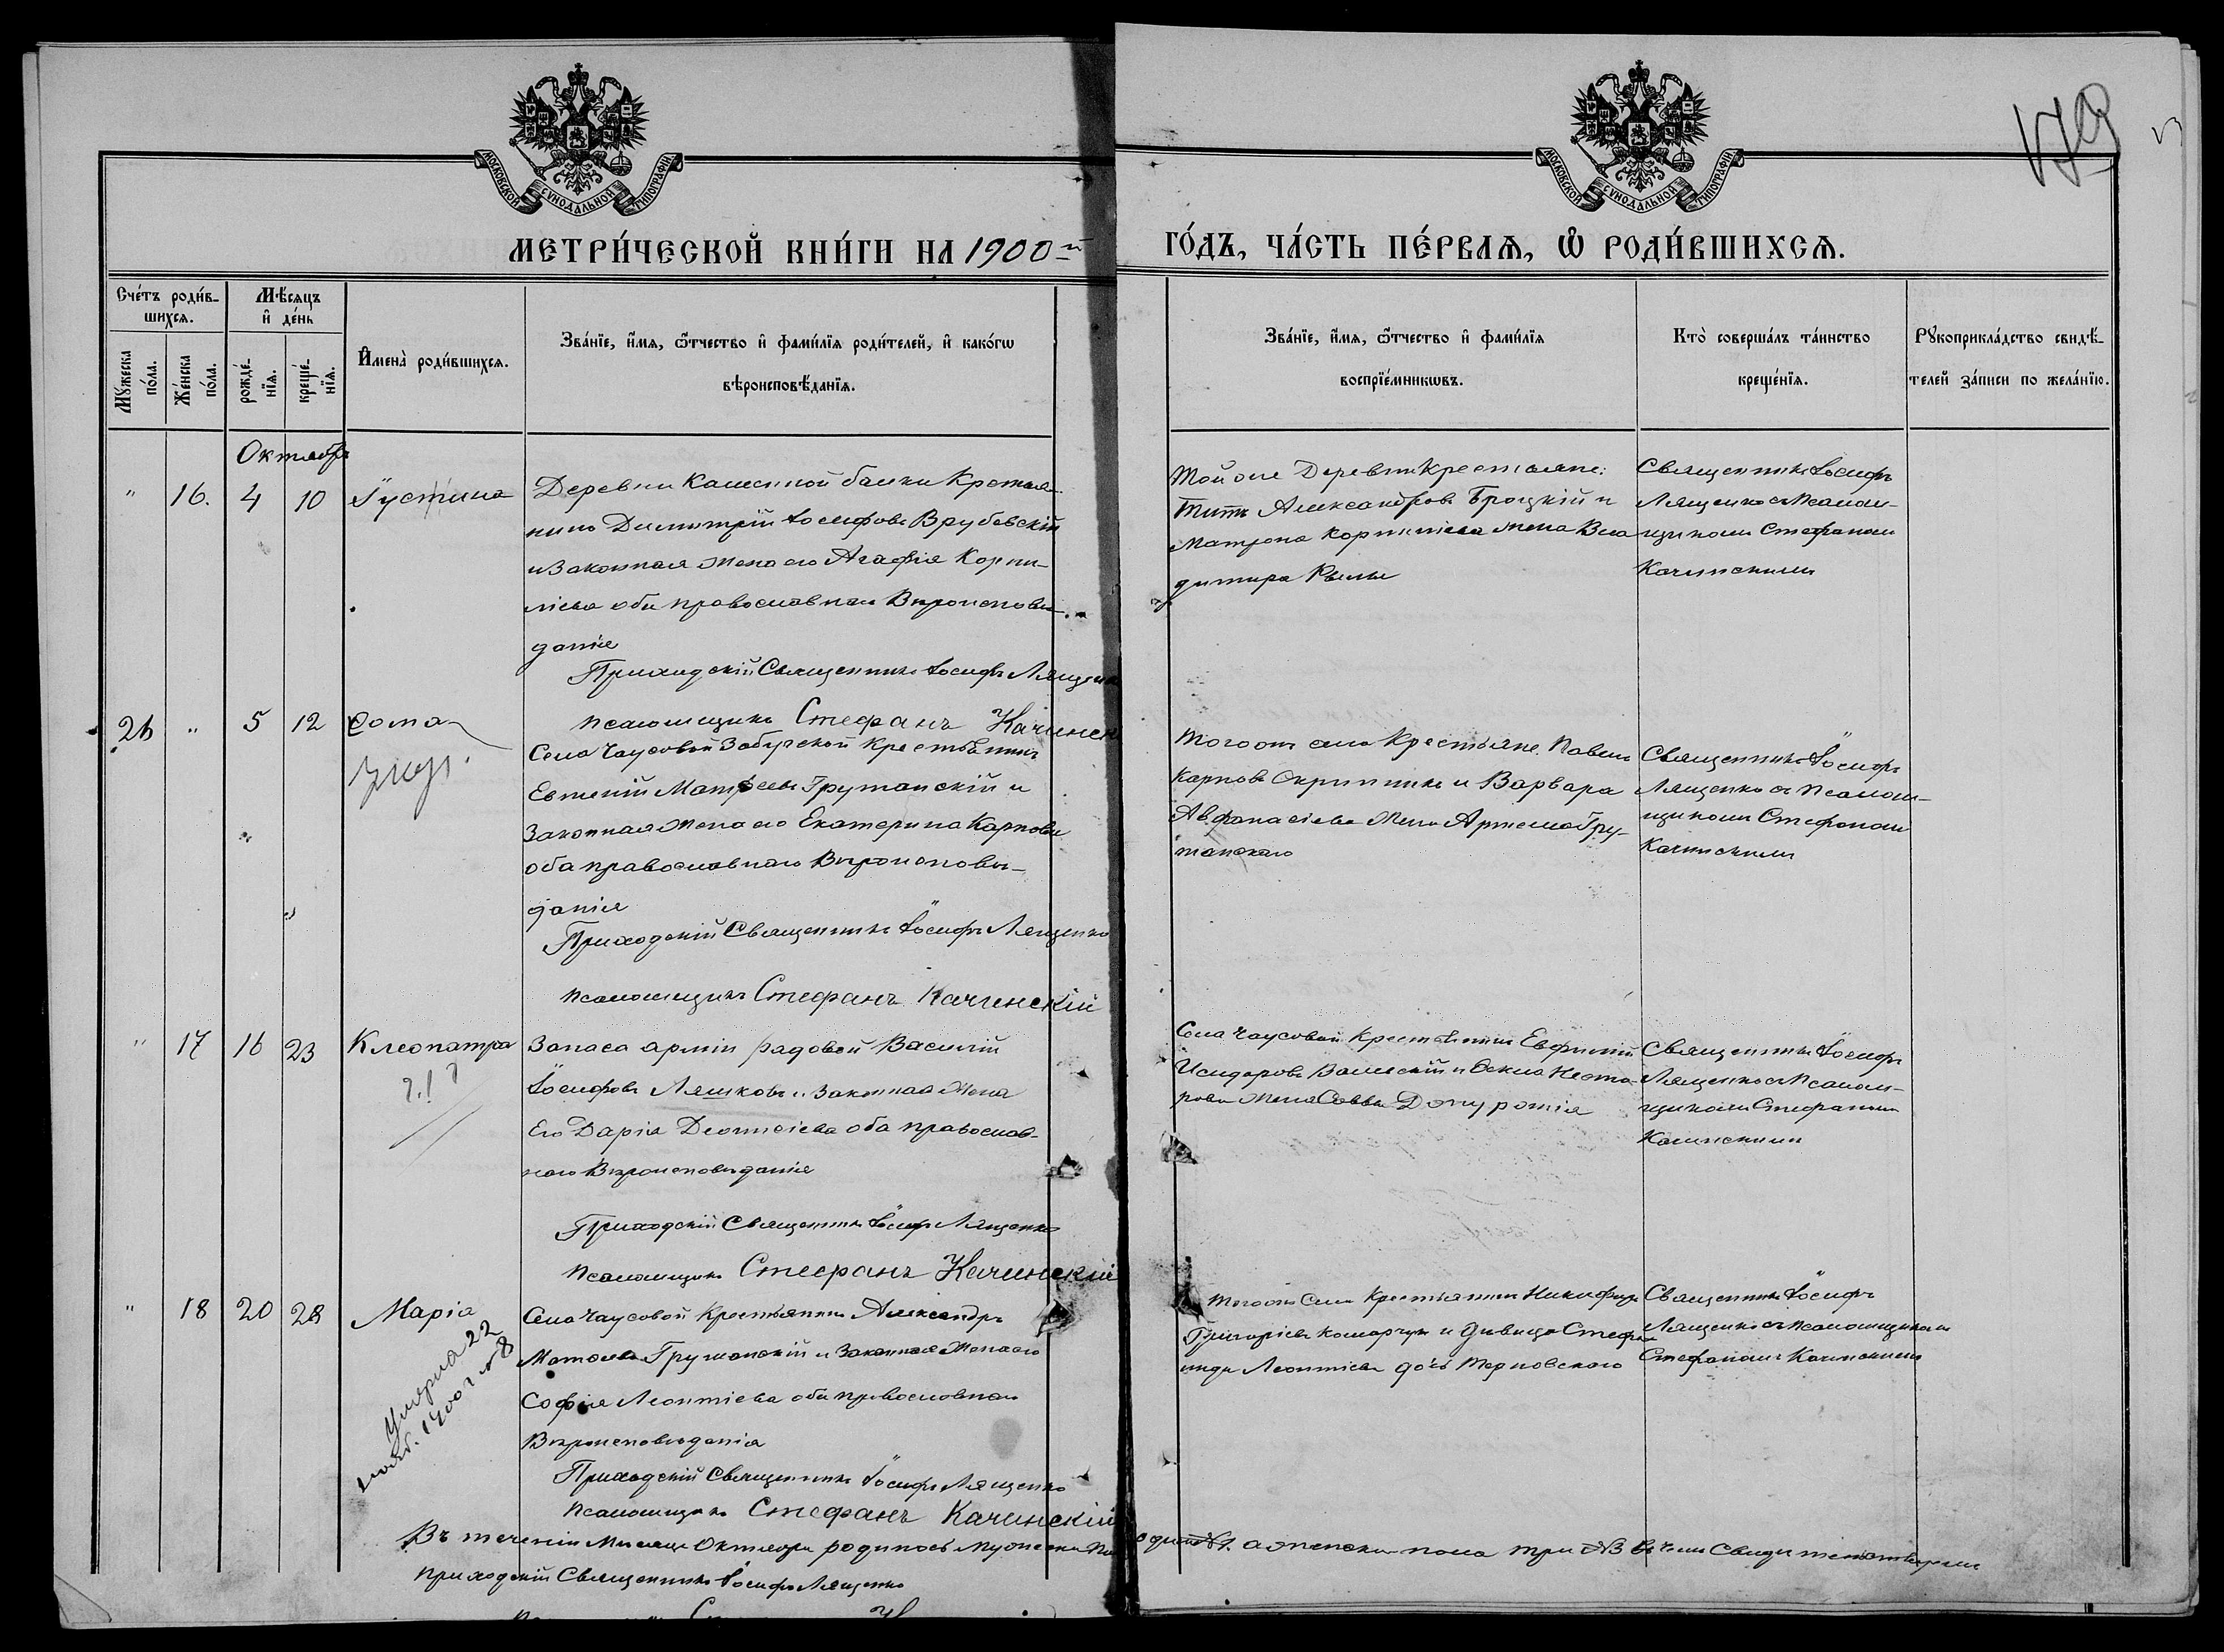 179
МОСКОВСКОЙ СУНОДАЛЬНОЙ ТИПОГРАФІИ
МОСКОВСКОЙ СУНОДАЛЬНОЙ ТИПОГРАФІИ
МЕТРИ́ЧЕСКОЙ КНИ́ГИ НА 1900-й
ГО́ДЪ, ЧА́СТЬ ПЕ́РВАѦ, Ѽ РОДИ́ВШИХСѦ.
Сче́тъ роди́в-
шихсѧ.
Мѣ́сѧцъ
и҆ де́нь
Мꙋ́жеска по́ла.
Же́нска по́ла.
рожде́-нїѧ.
креще́-нїѧ.
И҆мена̀ роди́вшихсѧ.
Зва́нїе, и҆́мѧ, ѻ҆́тчество и҆ фами́лїѧ роди́телей, и҆ како́гѡ
вѣроисповѣ́данїѧ.
Зва́нїе, и҆́мѧ, ѻ҆́тчество и҆ фами́лїѧ
воспрїе́мникѡвъ.
Кто̀ соверша́лъ та́инство
креще́нїѧ.
Рꙋкоприкла́дство свидѣ́-
телей за́писи по жела́нїю.
Октябрь
" 16. 4 10 Іустина
Деревни Каменной балки Крестья-
нинъ Димитрій Іосифовъ Врубевскій
и законная жена его Агафія Корни-
ліева оба православнаго Вѣроисповѣ-
данія
Приходскій Священникъ Іосифъ Лященко
псаломщикъ Стефанъ Качинскій
Той же Деревни Крестьяне:
Титъ Александровъ Броцкій и
Матрона Корниліева жена Вла
димира
Священникъ Іосифъ
Лященко съ Псалом-
щикомъ Стефаномъ
Качинскимъ
26 " 5 12 Ѳома
Села Чаусовой Забугской Крестьянинъ
Евгеній Матѳеевъ Грушанскій и
Законная жена его Екатерина Карпова
оба православнаго Вѣроисповѣ-
данія
Приходскій Священникъ Іосифъ Лященко
псаломщикъ Стефанъ Качинскій
Тогоже села Крестьяне Павелъ
Карповъ Скрипникъ и Варвара
Авфанасіева жена Артема Гру-
шанскаго
Священникъ Іосифъ
Лященко съ Псалом-
щикомъ Стефаномъ
Качинскимъ
" 17 16 23 Клеопатра
Запаса арміи рядовой Василій
Іосифовъ Ляшковъ и Законная жена
Его Дарія Леонтіева оба православ-
наго Вѣроисповѣданія
Приходскій Священникъ Іосифъ Лященко
Псаломщикъ Стефанъ Качинскій
Села Чаусовой Крестьянинъ Евфимій
Исидоровъ и Несто-
рова жена Саввы
Священникъ Іосифъ
Лященко съ Псалом-
щикомъ Стефаномъ
Качинскимъ
" 18 20 28 Марія
Умерла 22
нояб. 1900 г. № 8
Села Чаусовой Крестьянинъ Александръ
Матѳеевъ Грушанскій и Законная жена его
Софія Леонтіева оба православнаго
Вѣроисповѣданія
Приходскій Священникъ Іосифъ Лященко
Псаломщикъ Стефанъ Качинскій
Тогоже Села Крестьянинъ Никифоръ
Григоріевъ Комарчукъ и Дѣвица Стефа
нида Леонтіева дочь Терновскаго
Священникъ Іосифъ
Лященко съ псаломщикомъ
Стефаномъ Качинскимъ
Въ теченіи Мѣсяца Октября родилось мужеска пола одинъ №1. а женска пола три №3 въ чемъ Свидѣтельствуемъ
Приходскій Священникъ Іосифъ Лященко